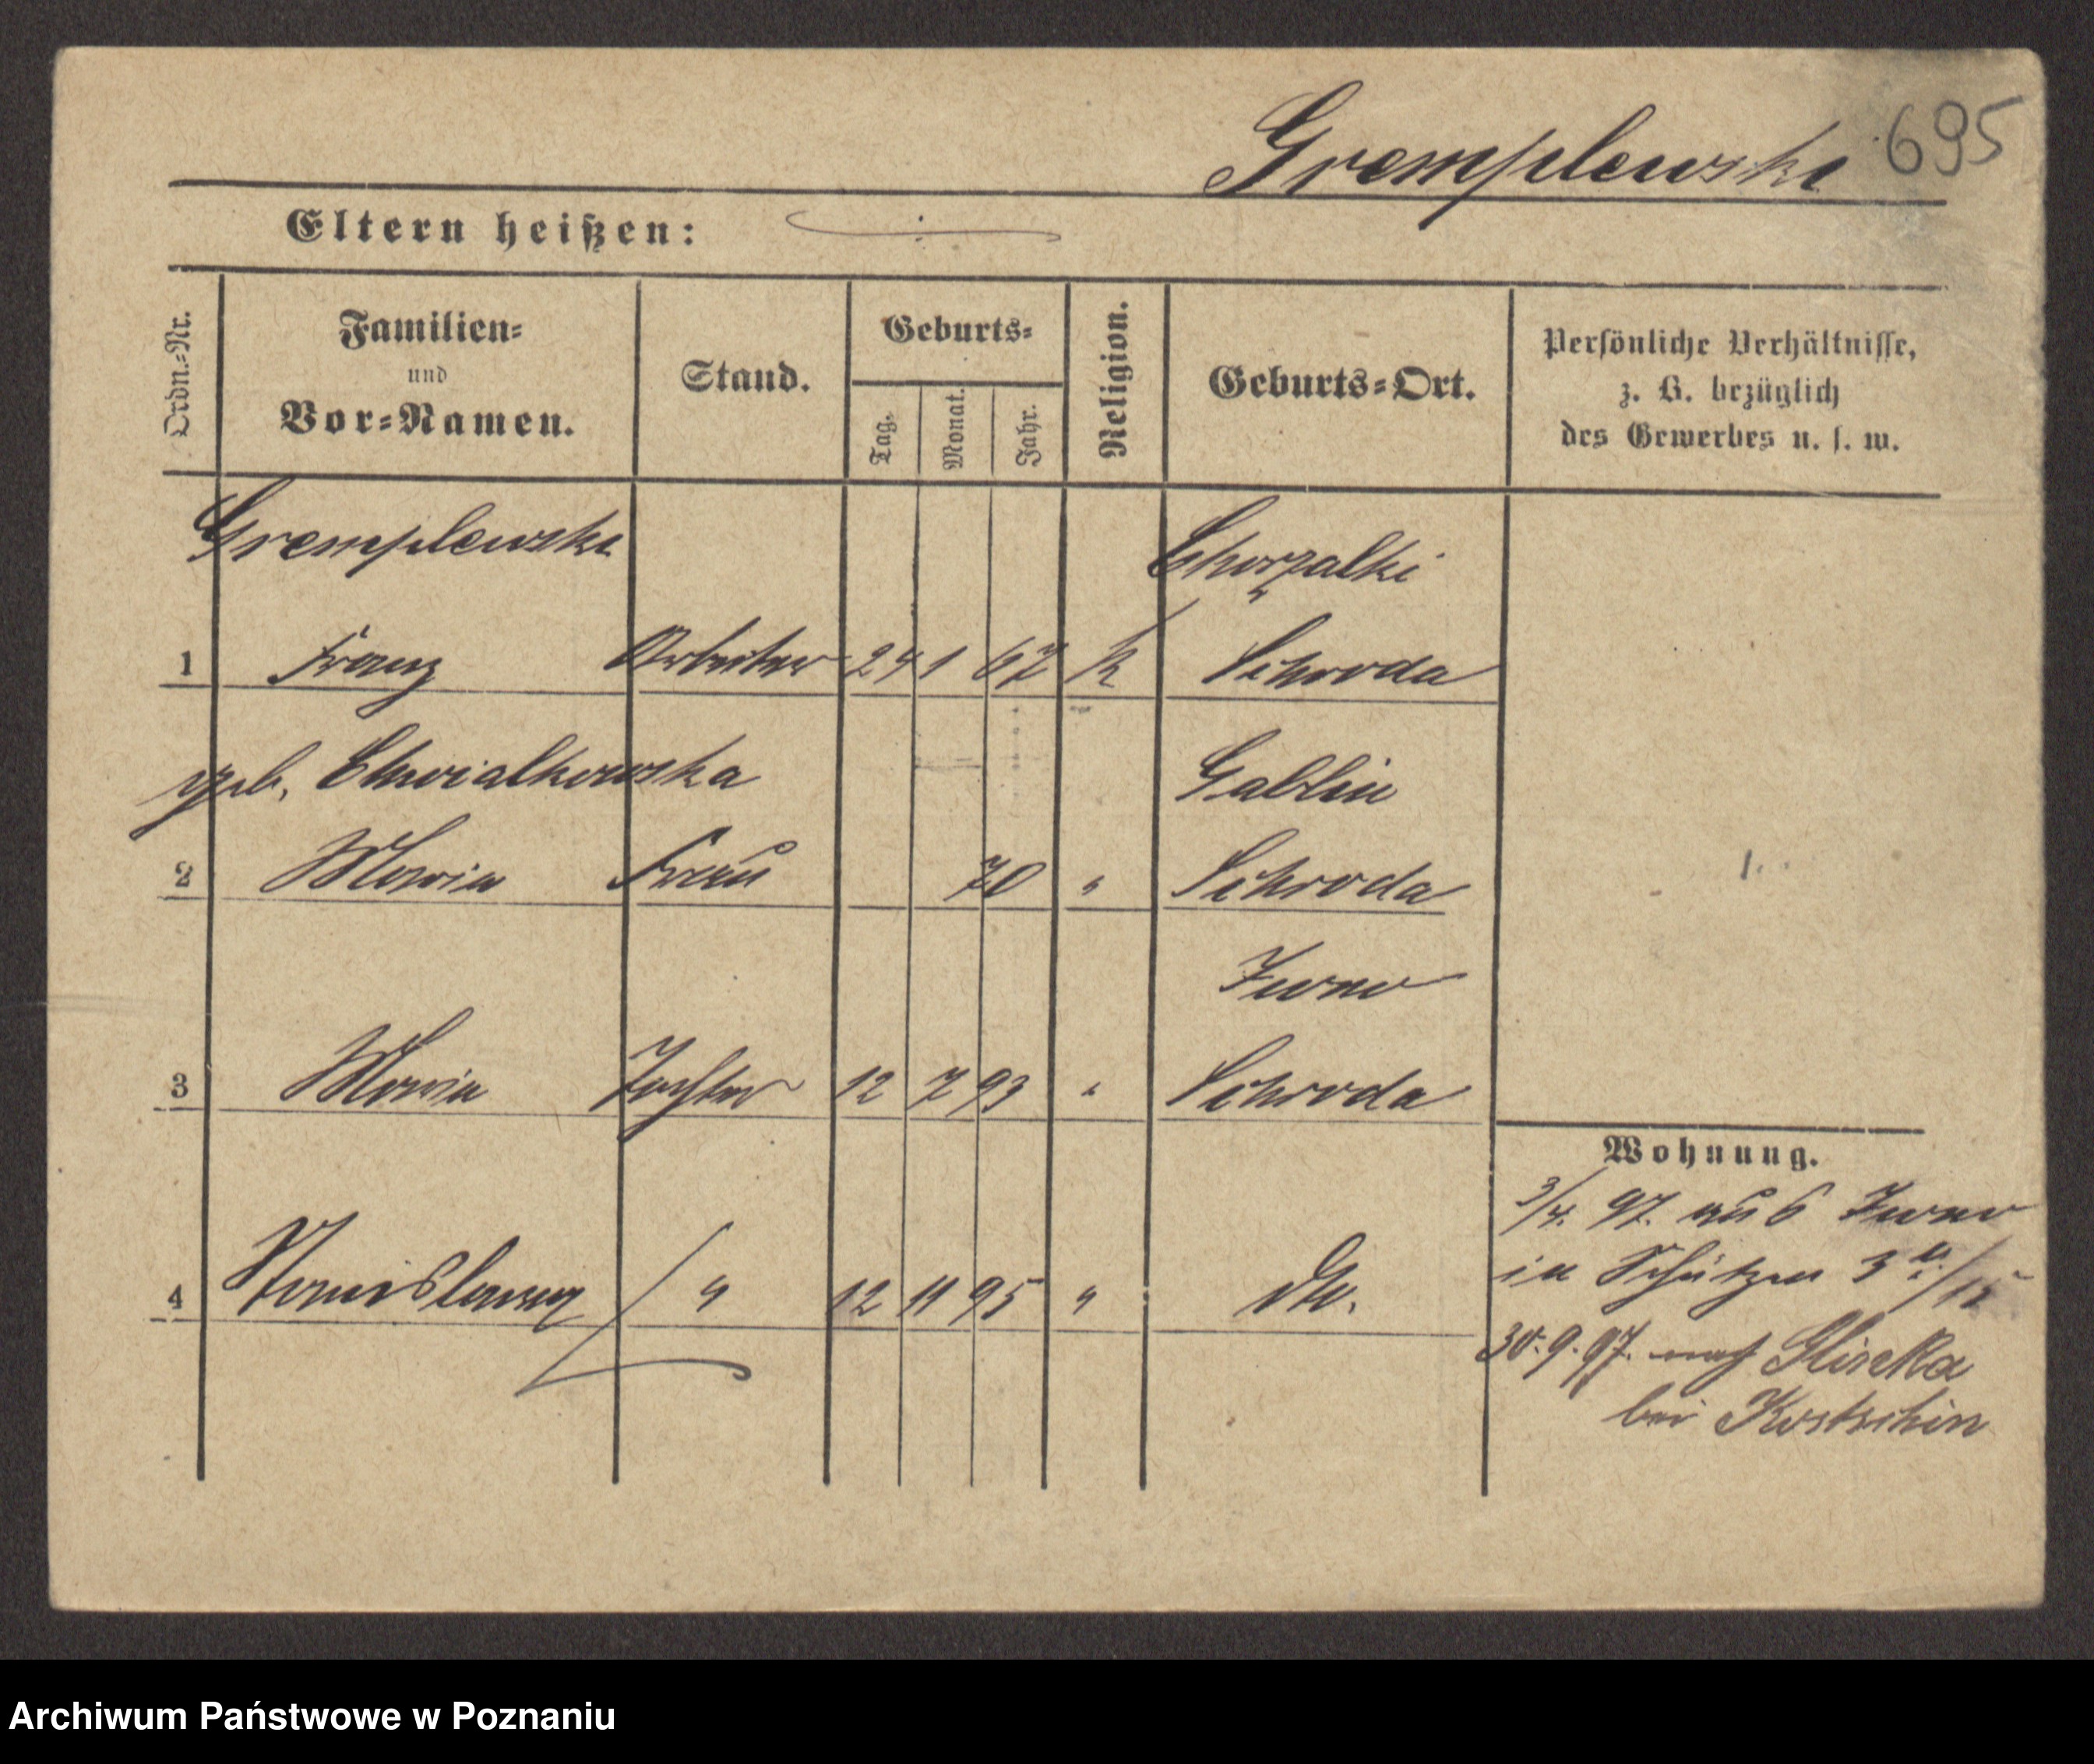 Gremplewski 695
Eltern heißen:
Ordn.-Nr.
Familien-
und
Vor-Namen.
Stand.
Geburts-
Tag.
Monat.
Jahr.
Religion.
Geburts-Ort.
Persönliche Verhältnisse,
z. B. bezüglich
des Gewerbes u. s. w.
Gremplewski Chorzalki
1 Franz Arbeiter 24 1 67 K Schroda
geb. Chwialkowska Gablin
2 Maria Frau 70 " Schroda
Iwno
3 Maria Tochter 12 7 93 " Schroda
Wohnung.
3/4. 97. aus Iwno
in Schützen 3
4 Stanislawa " 12 11 95 " do.
30.9.97. nach
bei Kostschin
Archiwum Państwowe w Poznaniu